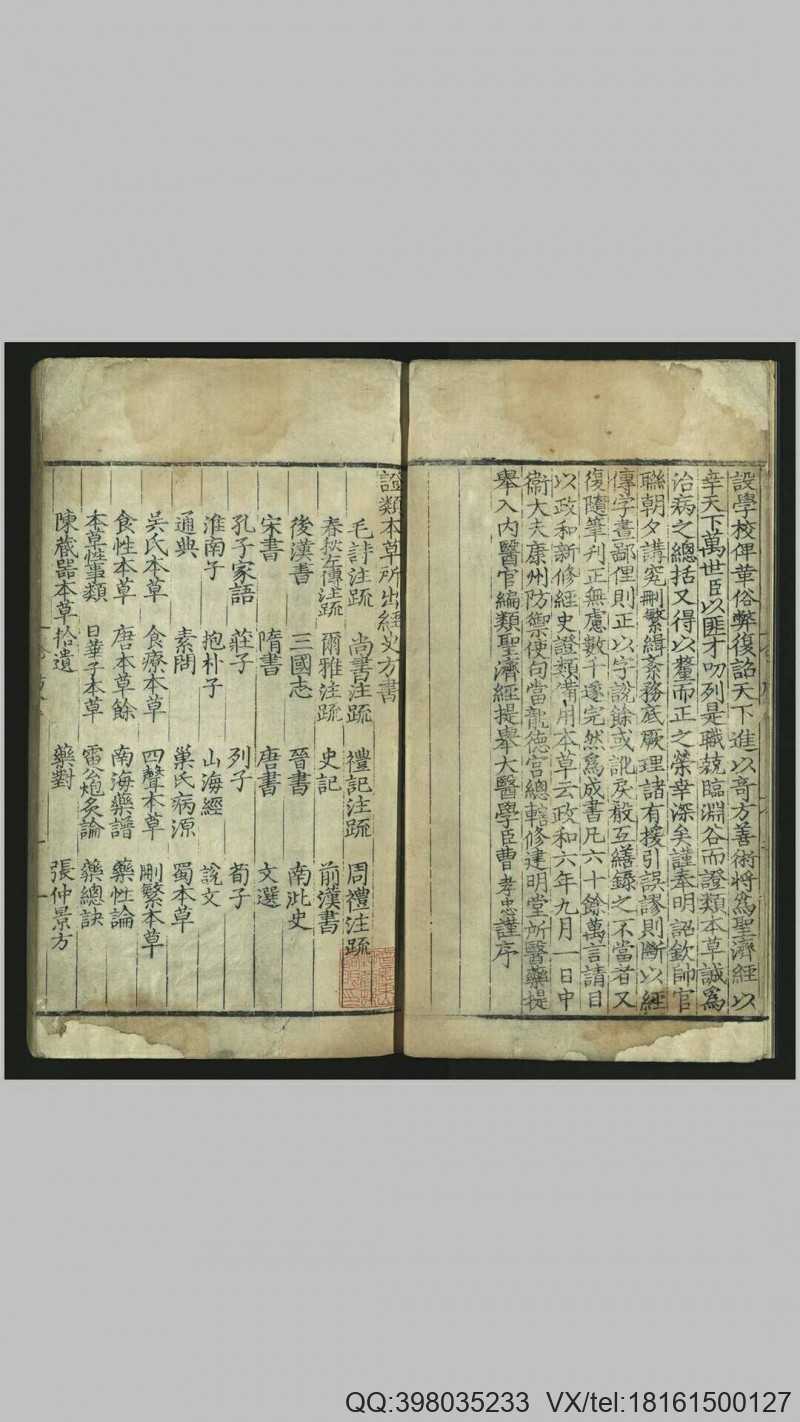 設學校俾革俗弊復詔天下進以奇方善術將爲聖濟經以
幸天下萬世臣以匪才叨列是職兢臨淵谷而證類本草誠爲
治病之總括又得以釐而正之榮幸深矣謹奉明詔欽帥官
聯朝夕講究刪繁緝紊務底厥理諸有援引誤謬則斷以經
傳字畫鄙俚則正以字說餘或訛戾殽互繕錄之不當者又
復隨筆刋正無慮數千遂完然爲成書凡六十餘萬言請目
以政和新修經史證類備用本草云政和六年九月一日中
衛大夫康州防禦使句當龍德宮總轄修建明堂所醫藥提
舉入內醫官編類聖濟經提舉大醫學臣曹孝忠謹序
證類本草所出經史方書
毛詩注疏 尚書注疏 禮記注疏 周禮注疏
春秋左傳注疏 爾雅注疏 史記 前漢書
後漢書 三國志 晉書 南北史
宋書 隋書 唐書 文選
孔子家語 莊子 列子 荀子
淮南子 抱朴子 山海經 說文
通典 素問 巢氏病源 蜀本草
吳氏本草 食療本草 四聲本草 刪繁本草
食性本草 唐本草餘 南海藥譜 藥性論
本草性事類 日華子本草 雷公炮炙論 藥總訣
陳藏器本草拾遺 藥對 張仲景方
QQ:398035233 VX/tel:18161500127